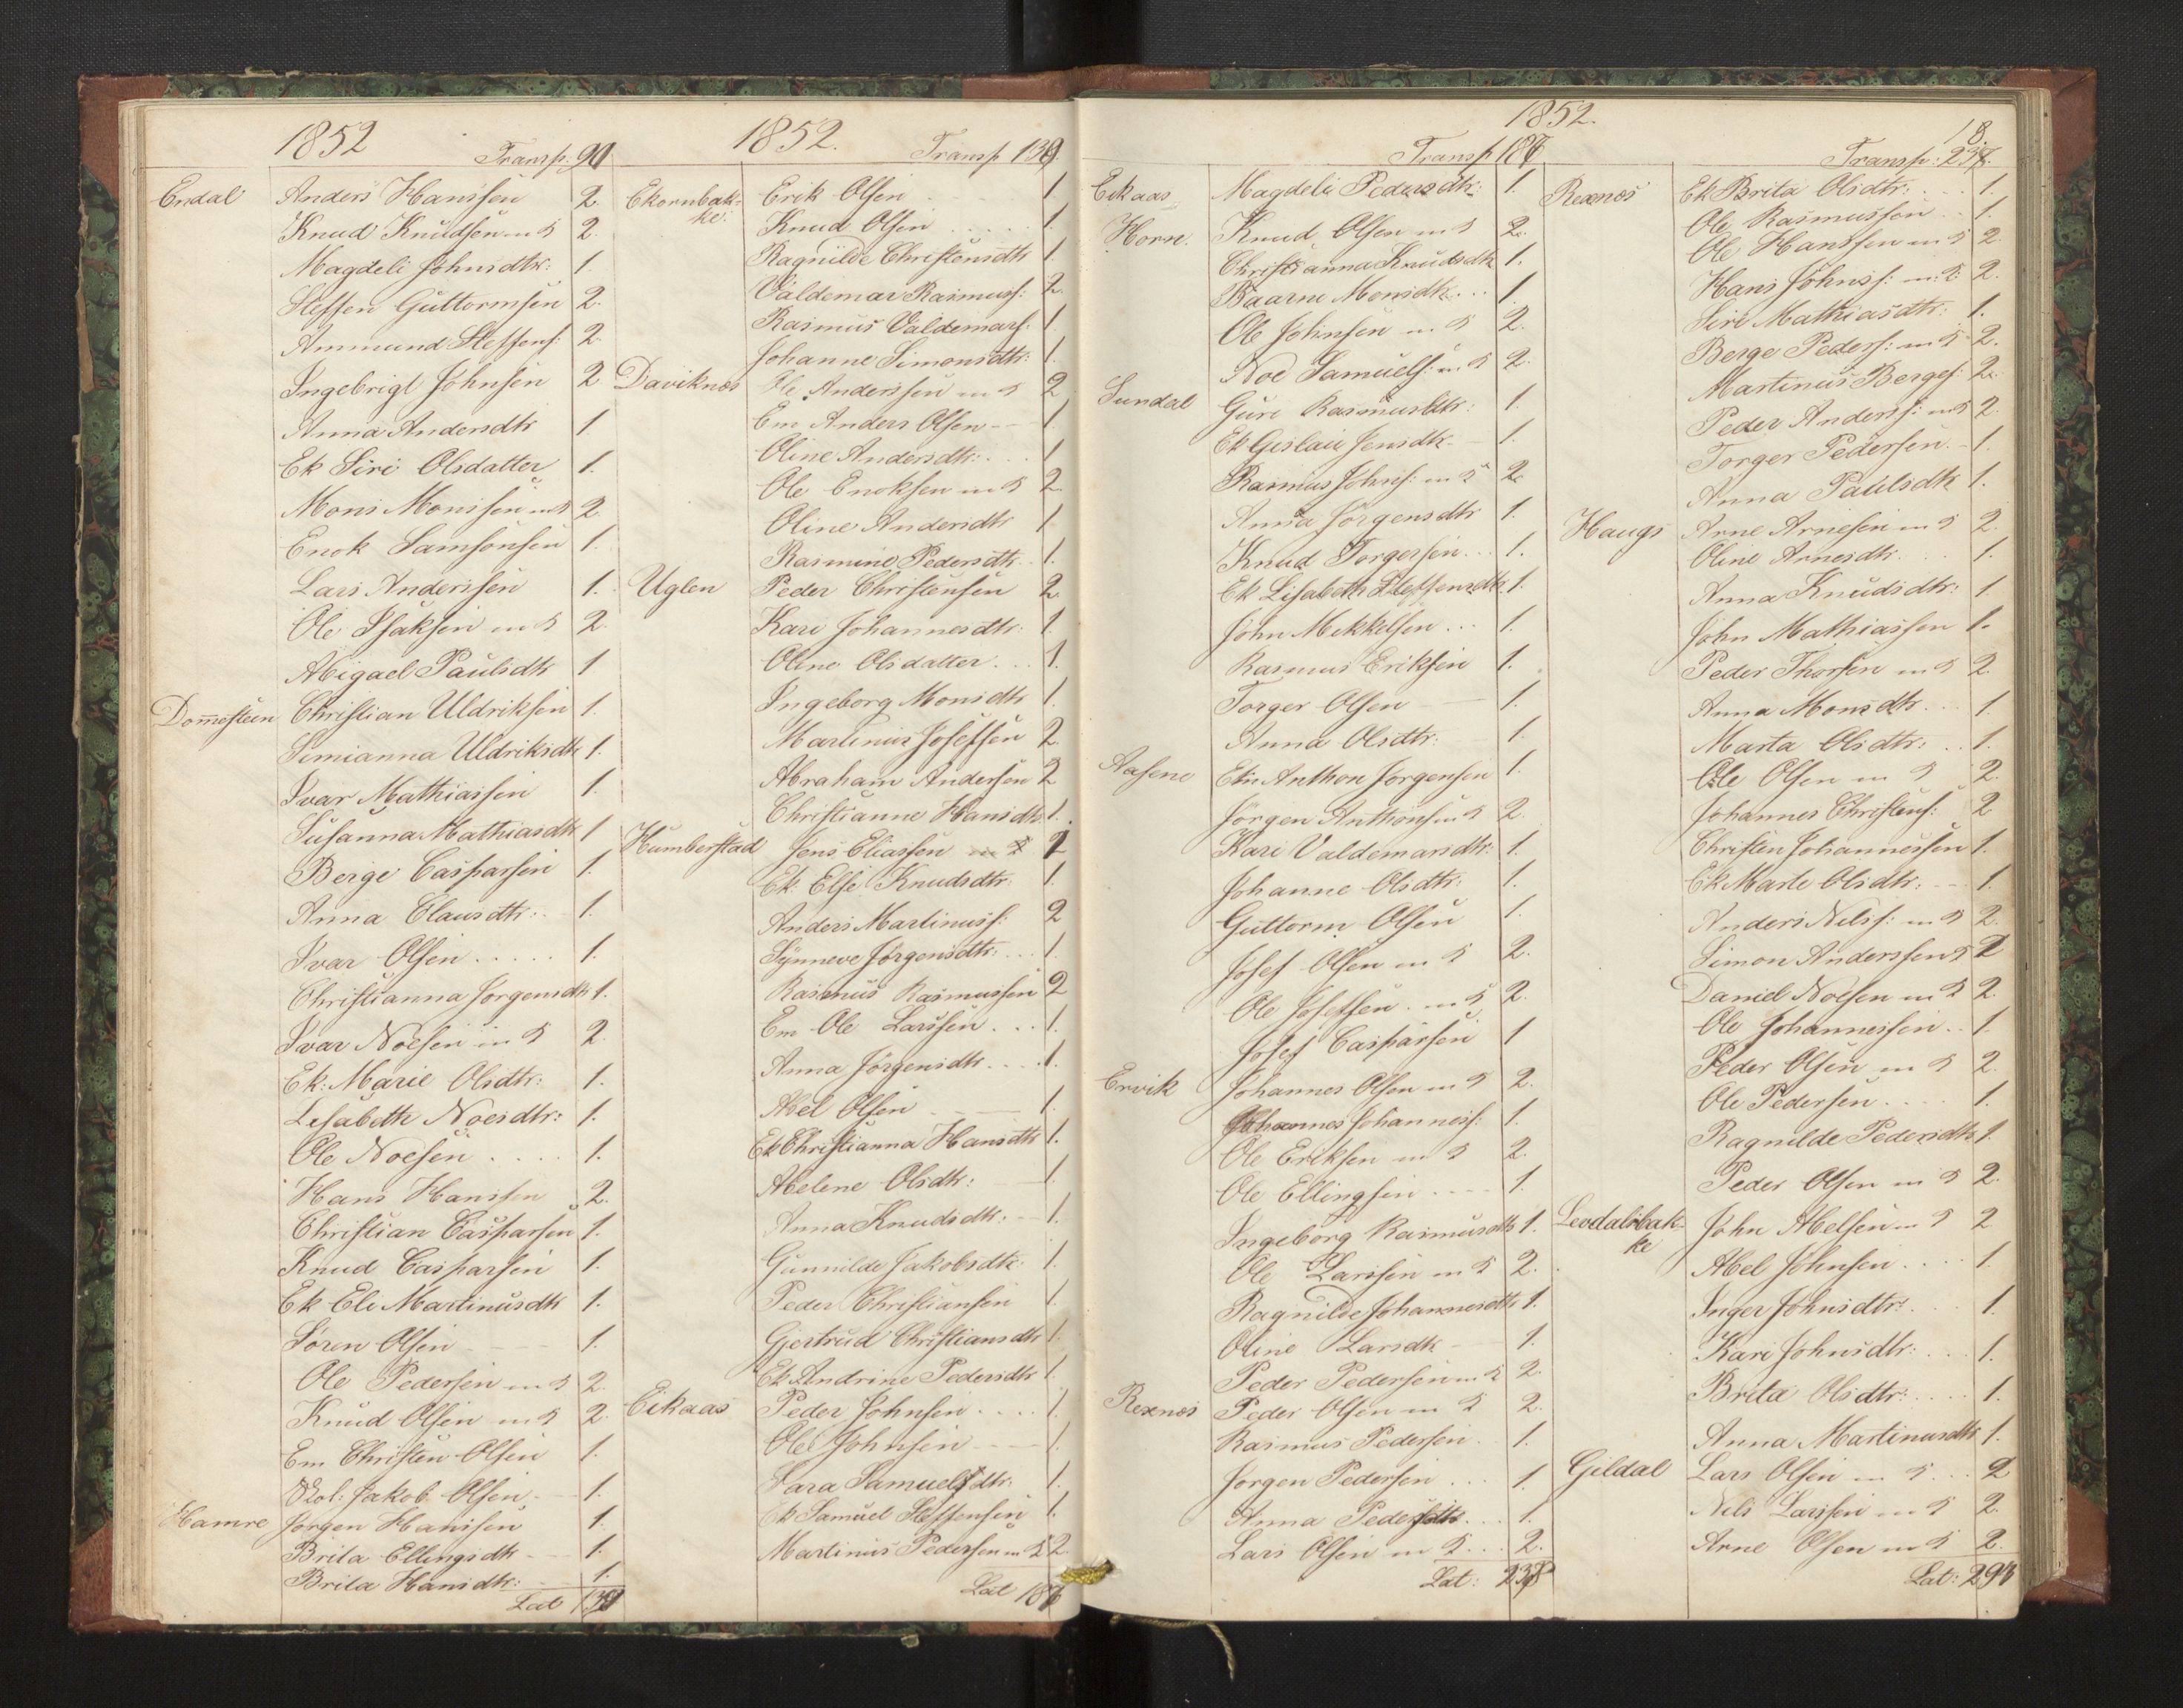 1852
Transp: 90
Endal Anders Hanssen 2.
Knud Knudsen m 2.
Magdeli Johnsdtr: 1.
Steffen Guttormsen 2.
Ammund Steffens: 2.
Ingebrigt Johnsen 2
Anna Andersdtr 1
Ek Siri Olsdatter 1.
Mons Monssen m 2.
Enok Samsonsen 1.
Lars Anderssen 1.
Ole Isaksen m 2.
Abigael Paulsdtr 1
Domesteen Christian Uldriksen 1.
Simianna Uldriksdtr 1.
Ivar Mathiassen 1.
Susanna Mathiasdtr 1
Berge Casparsen 1.
Anna Clausdtr: 1.
Ivar Olsen ..... 1.
Christianna Jørgensdtr 1.
Ivar Noesen m 2.
Ek: Marie Olsdtr: 1.
Lisabeth Noesdtr: 1.
Ole Noesen .... 1.
Hans Hanssen 2.
Christian Casparsen 1.
Knud Casparsen 1.
Ek Eli Martinusdtr 1.
Søren Olsen 1.
Ole Pedersen m 2.
Knud Olsen m 2.
Em Christen Olsen 1.
Skol: Jakob Olsen 1.
Hamre Jørgen Hanssen 1.
Brita Ellingsdtr 1.
Brita Hansdtr: 1.
Lat 139
1852.
Transp 139.
Ekornbak-
ke: Erik Olsen 1.
Knud Olsen ..... 1.
Ragnilde Christensdtr 1.
Valdemar Rasmuss: 2.
Rasmus Valdemars: 1.
Johanne Simonsdtr: 1.
Daviknæs Ole Anderssen m 2
Em Anders Olsen 1.
Oline Andersdtr: 1
Ole Enoksen m 2.
Oline Andersdtr 1
Rasmine Pedersdtr 1.
Uglen Peder Christensen 2.
Kari Johannesdtr: 1.
Oline Olsdatter ... 1.
Ingeborg Monsdtr 1.
Martinus Josefsen 2.
Abraham Andersen 2
Christianne Hansdtr 1.
Humberstad Jens Eliassen 2
Ek. Else Knudsdtr: 1.
Anders Martinuss: 2
Synneve Jørgensdtr: ... 1.
Rasmus Rasmussen 2
Em Ole Larssen ... 1.
Anna Jørgensdtr .... 1.
Abel Olsen 1.
Ek Christianna Hansdtr 1.
Abelene Olsdtr: 1.
Anna Knudsdtr: 1.
Gunnilde Jakobsdtr: 1.
Peder Christiansen 1.
Gjertrud Christiansdtr 1
Ek Andrine Pedersdtr 1.
Eikaas Peder Johnsen .... 1.
Ole Johnsen 1.
Sara Samuelsdtr: 1.
Ek Samuel Steffensen 1.
Martinus Pedersen m 2.
Lat 186
1852.
Transp 186
Eikaas Magdeli Pedersdtr: 1.
Horne. Knud Olsen m 2.
Christianna Knudsdtr 1.
Baarne Monsdtr ... 1.
Ole Johnsen m 2.
Noe Samuels: m 2.
Sundal Guri Rasmusdtr: 1.
Ek Gislau Jensdtr 1.
Rasmus Johns: m 2.
Anna Jørgensdtr 1.
Knud Torgersen ... 1.
Ek Lisabeth Steffensdtr 1.
John Mikkelsen ... 1.
Rasmus Eriksen 1.
Torger Olsen 1.
Anna Olsdtr: 1.
Aasene Em Anthon Jørgensen 1.
Jørgen Anthonsen 2.
Kari Valdemarsdtr: 1.
Johanne Olsdtr: 1.
Guttorm Olsen 1.
Josef Olsen m 2.
Ole Josefsen m 2.
Josef Casparsen 1
Ervik Johannes Olsen m 2.
Johannes Johanness: 1.
Ole Eriksen m 2.
Ole Ellingsen .... 1.
Ingeborg Rasmusdtr 1.
Ole Larssen m 2.
Ragnilde Johannesdtr 1.
Oline Larsdtr 1.
Peder Pedersen m 2.
Rexnæs Peder Olsen m 2.
Rasmus Pedersen 1.
Jørgen Pedersen ... 1.
Anna Pedersdtr ... 1.
Lars Olsen m ... 2.
Lat: 238
18.
Transp: 238.
Rexnæs Ek Brita Olsdtr: 1.
Ole Rasmussen 1.
Ole Hanssen m 2
Hans Johnss: m 2.
Siri Mathiasdtr: 1.
Berge Peders: m 2.
Martinus Berges: 2.
Peder Anderss: m 2
Torger Pedersen 1.
Anna Paulsdtr 1.
Haugs Arne Arnesen m 2
Oline Arnesdtr. 1.
Anna Knudsdtr: 1
John Mathiassen 1.
Peder Thorsen m 2.
Anna Monsdtr ... 1
Marta Olsdtr: .. 1.
Ole Olsen m 2.
Johannes Christens: 2
Christen Johannessen 1.
Ek Marte Olsdtr: 1.
Anders Nilss: m 2.
Simon Anderssen 2
Daniel Noesen m 2.
Ole Johannessen .. 1.
Peder Olsen m 2.
Ole Pedersen .... 1.
Ragnilde Pedersdtr 1.
Peder Olsen m 2.
Levdalsbak-
ke John Abelsen m 2
Abel Johnsen .... 1.
Inger Johnsdtr: 1.
Kari Johnsdtr: ... 1.
Brita Olsdtr: .... 1.
Anna Martinusdtr 1.
Gildal Lars Olsen m ... 2
Nils Larssen m 2.
Arne Olsen m 2.
Lat: 294